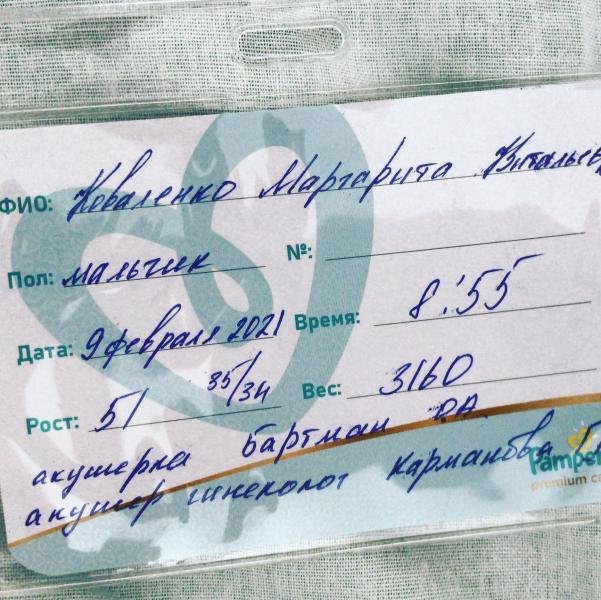 ФИО: Коваленко Маргарита Витальев
Пол: мальчик №:
Дата: 9 февраля 2021 Время: 8:55
Рост: 51 35/34 Вес: 3160
акушерка Бартман ОА
акушер гинеколог Карманова
Pampe
premium ca